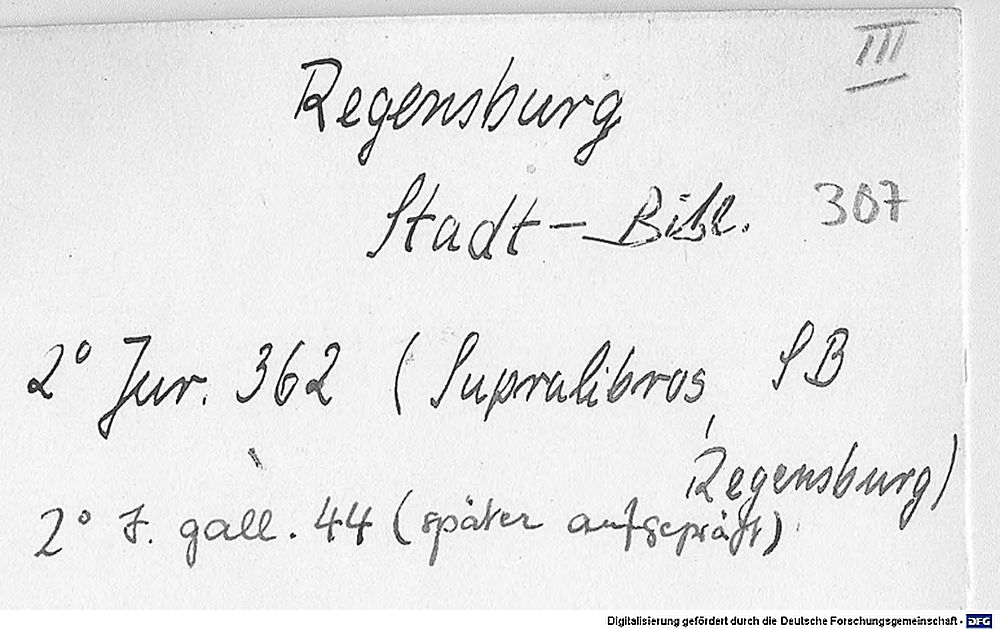 III
Regensburg
Stadt-Bibl.
307
2° Jur. 362 (Supralibros, SB
Regensburg)
2° J. gall. 44 (später aufgeprägt)
Digitalisierung gefördert durch die Deutsche Forschungsgemeinschaft - DFG